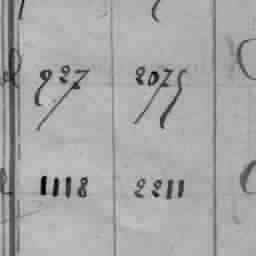 927 2075
1118 2211